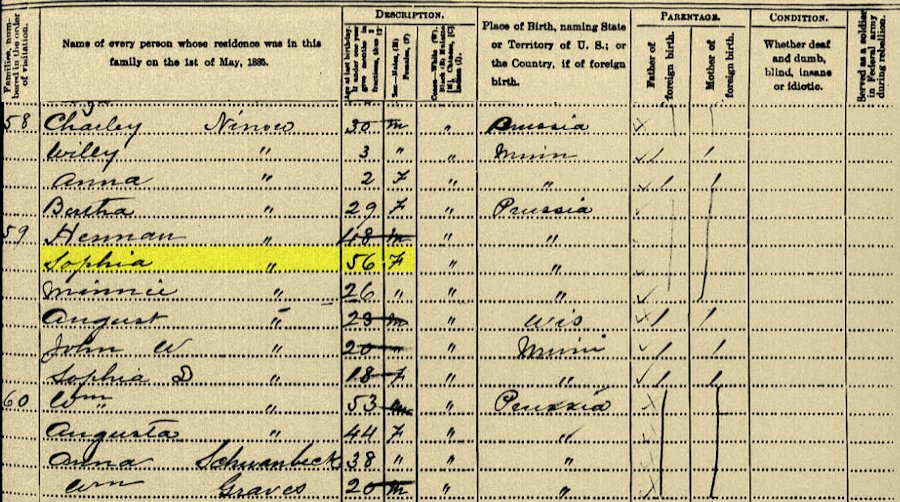 Families, num-
bered in the order
of visitation.
Name of every person whose residence was in this
family on the 1st of May, 1885.
DESCRIPTION.
Age at last birthday.
Sex—Males, (M)
Females, (F).
Color—White (W);
Place of Birth, naming State
or Territory of U. S.; or
the Country, if of foreign
birth.
PARENTAGE.
Father of
foreign birth.
Mother of
foreign birth.
CONDITION.
Whether deaf
and dumb,
blind, insane
or idiotic.
Served as a soldier
in Federal army
during rebellion.
58 Charley Ninow 30 m " Prussia
Willy " 3 " " Minn
Anna " 2 F " "
Bertha " 29 F Prussia
59 Herman " 48 m " "
Sophia " 56 F " "
Minnie " 26 " " "
August " 23 m " Wis
John W " 20 " " Minn
Sophia D 18 F " "
60 Wm " " 53 m " Prussia
Augusta " 44 F " "
Anna Schwanbeck 38 " " "
Wm Graves 20 m " "